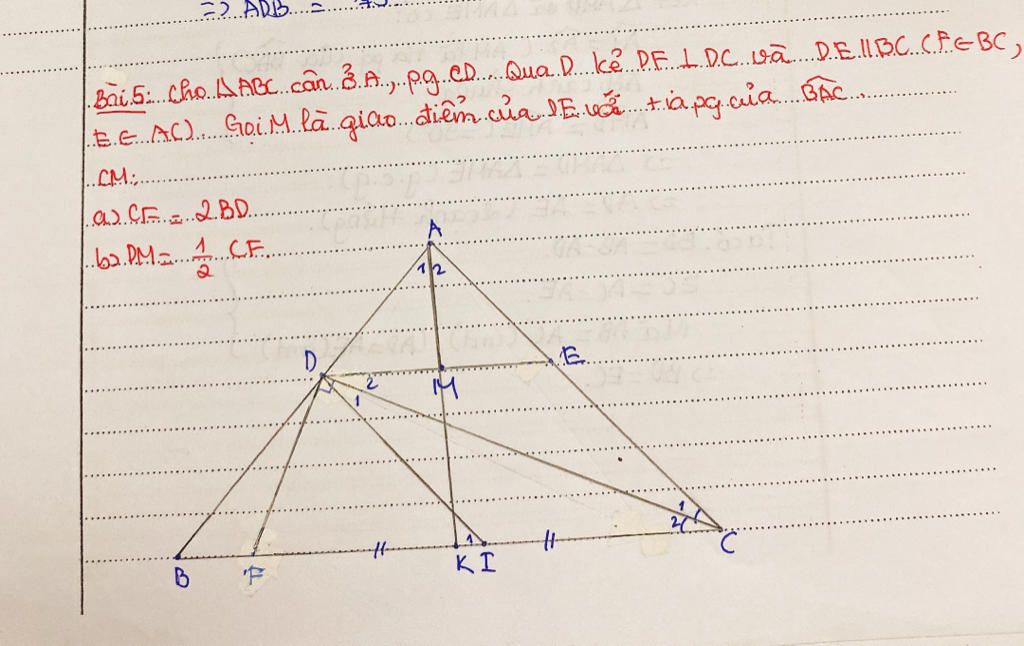 => ADB =
Bài 5: Cho ΔABC cân ở A, pg CD. Qua D kẻ DF ⊥ DC và DE // BC (F ∈ BC,
E ∈ AC). Gọi M là giao điểm của DE với tia pg của BAC.
CM:
a) CF = 2BD
b) DM = 1/2 CF.
A
1 2
D 2 M E
1
1
2
1
B F K I C